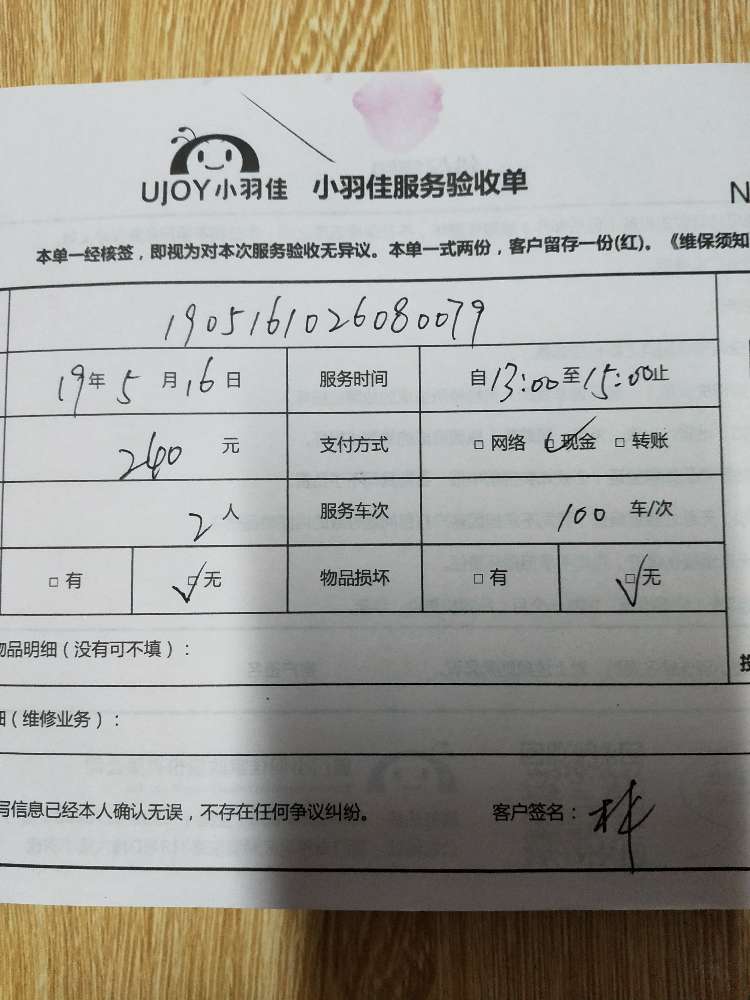 UJOY小羽佳 小羽佳服务验收单
N
本单一经核签，即视为对本次服务验收无异议。本单一式两份，客户留存一份(红)。《维保须知
1905161026080079
19年 5 月 16 日 服务时间 自 13:00 至 15:00 止
240 元 支付方式 □ 网络 ☑ 现金 □ 转账
2 人 服务车次 100 车/次
□ 有 ☑ 无 物品损坏 □ 有 ☑ 无
物品明细（没有可不填）：
细（维修业务）：
写信息已经本人确认无误，不存在任何争议纠纷。 客户签名：林